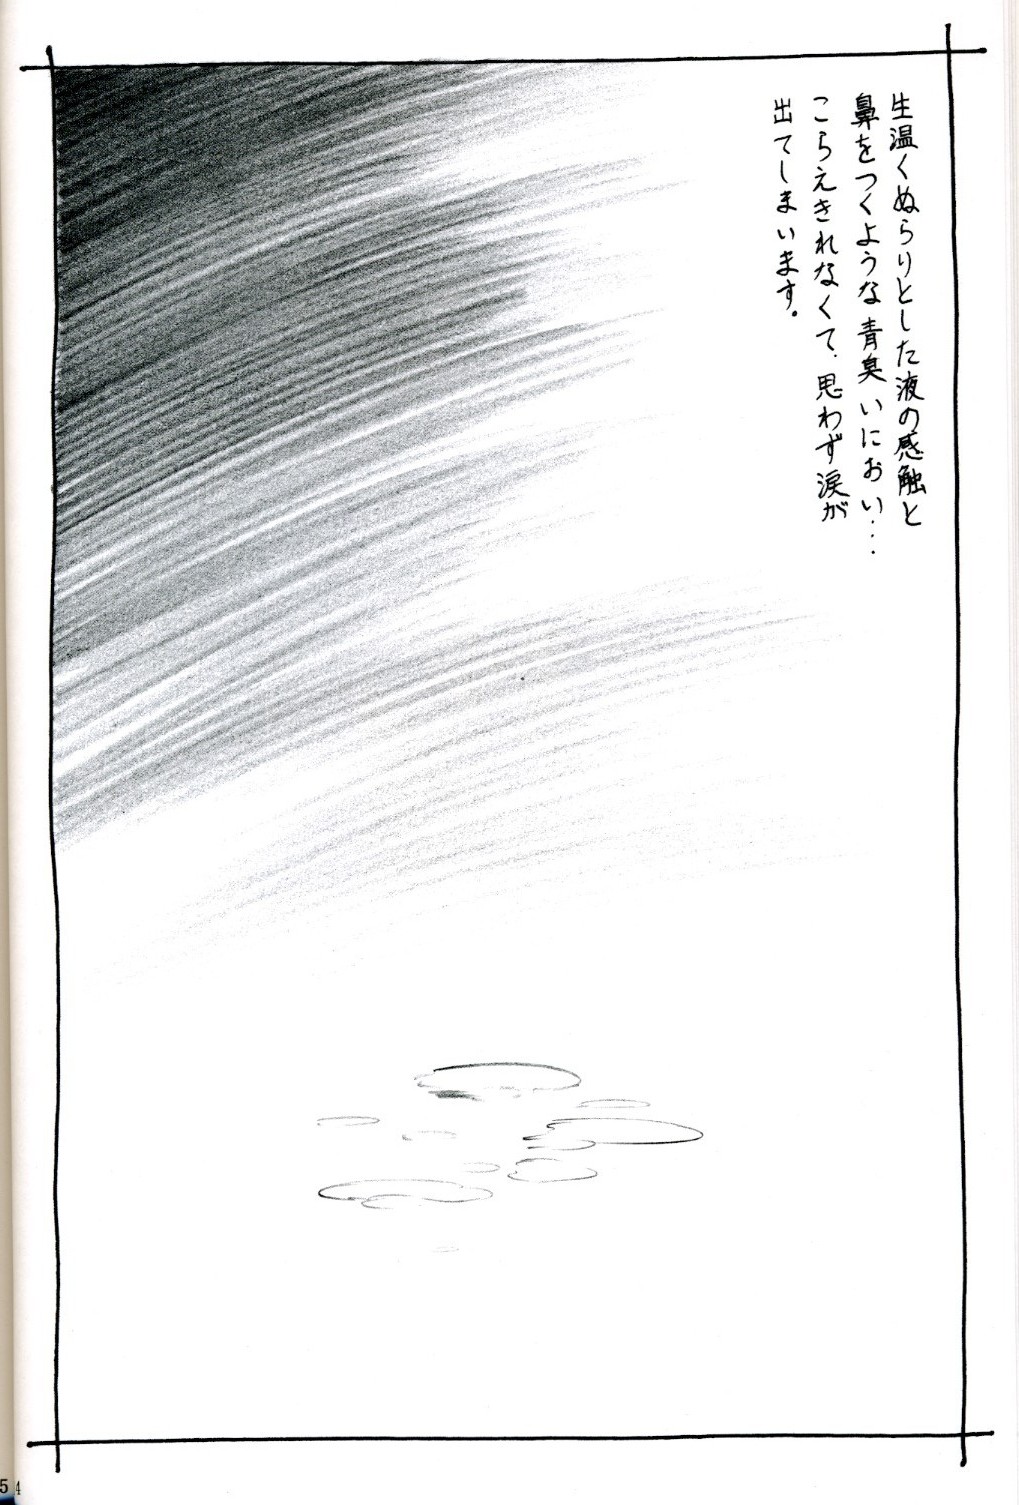 生温くぬらりとした液の感触と
鼻をつくような青臭いにおい…
こらえきれなくて、思わず涙が
出てしまいます。
54